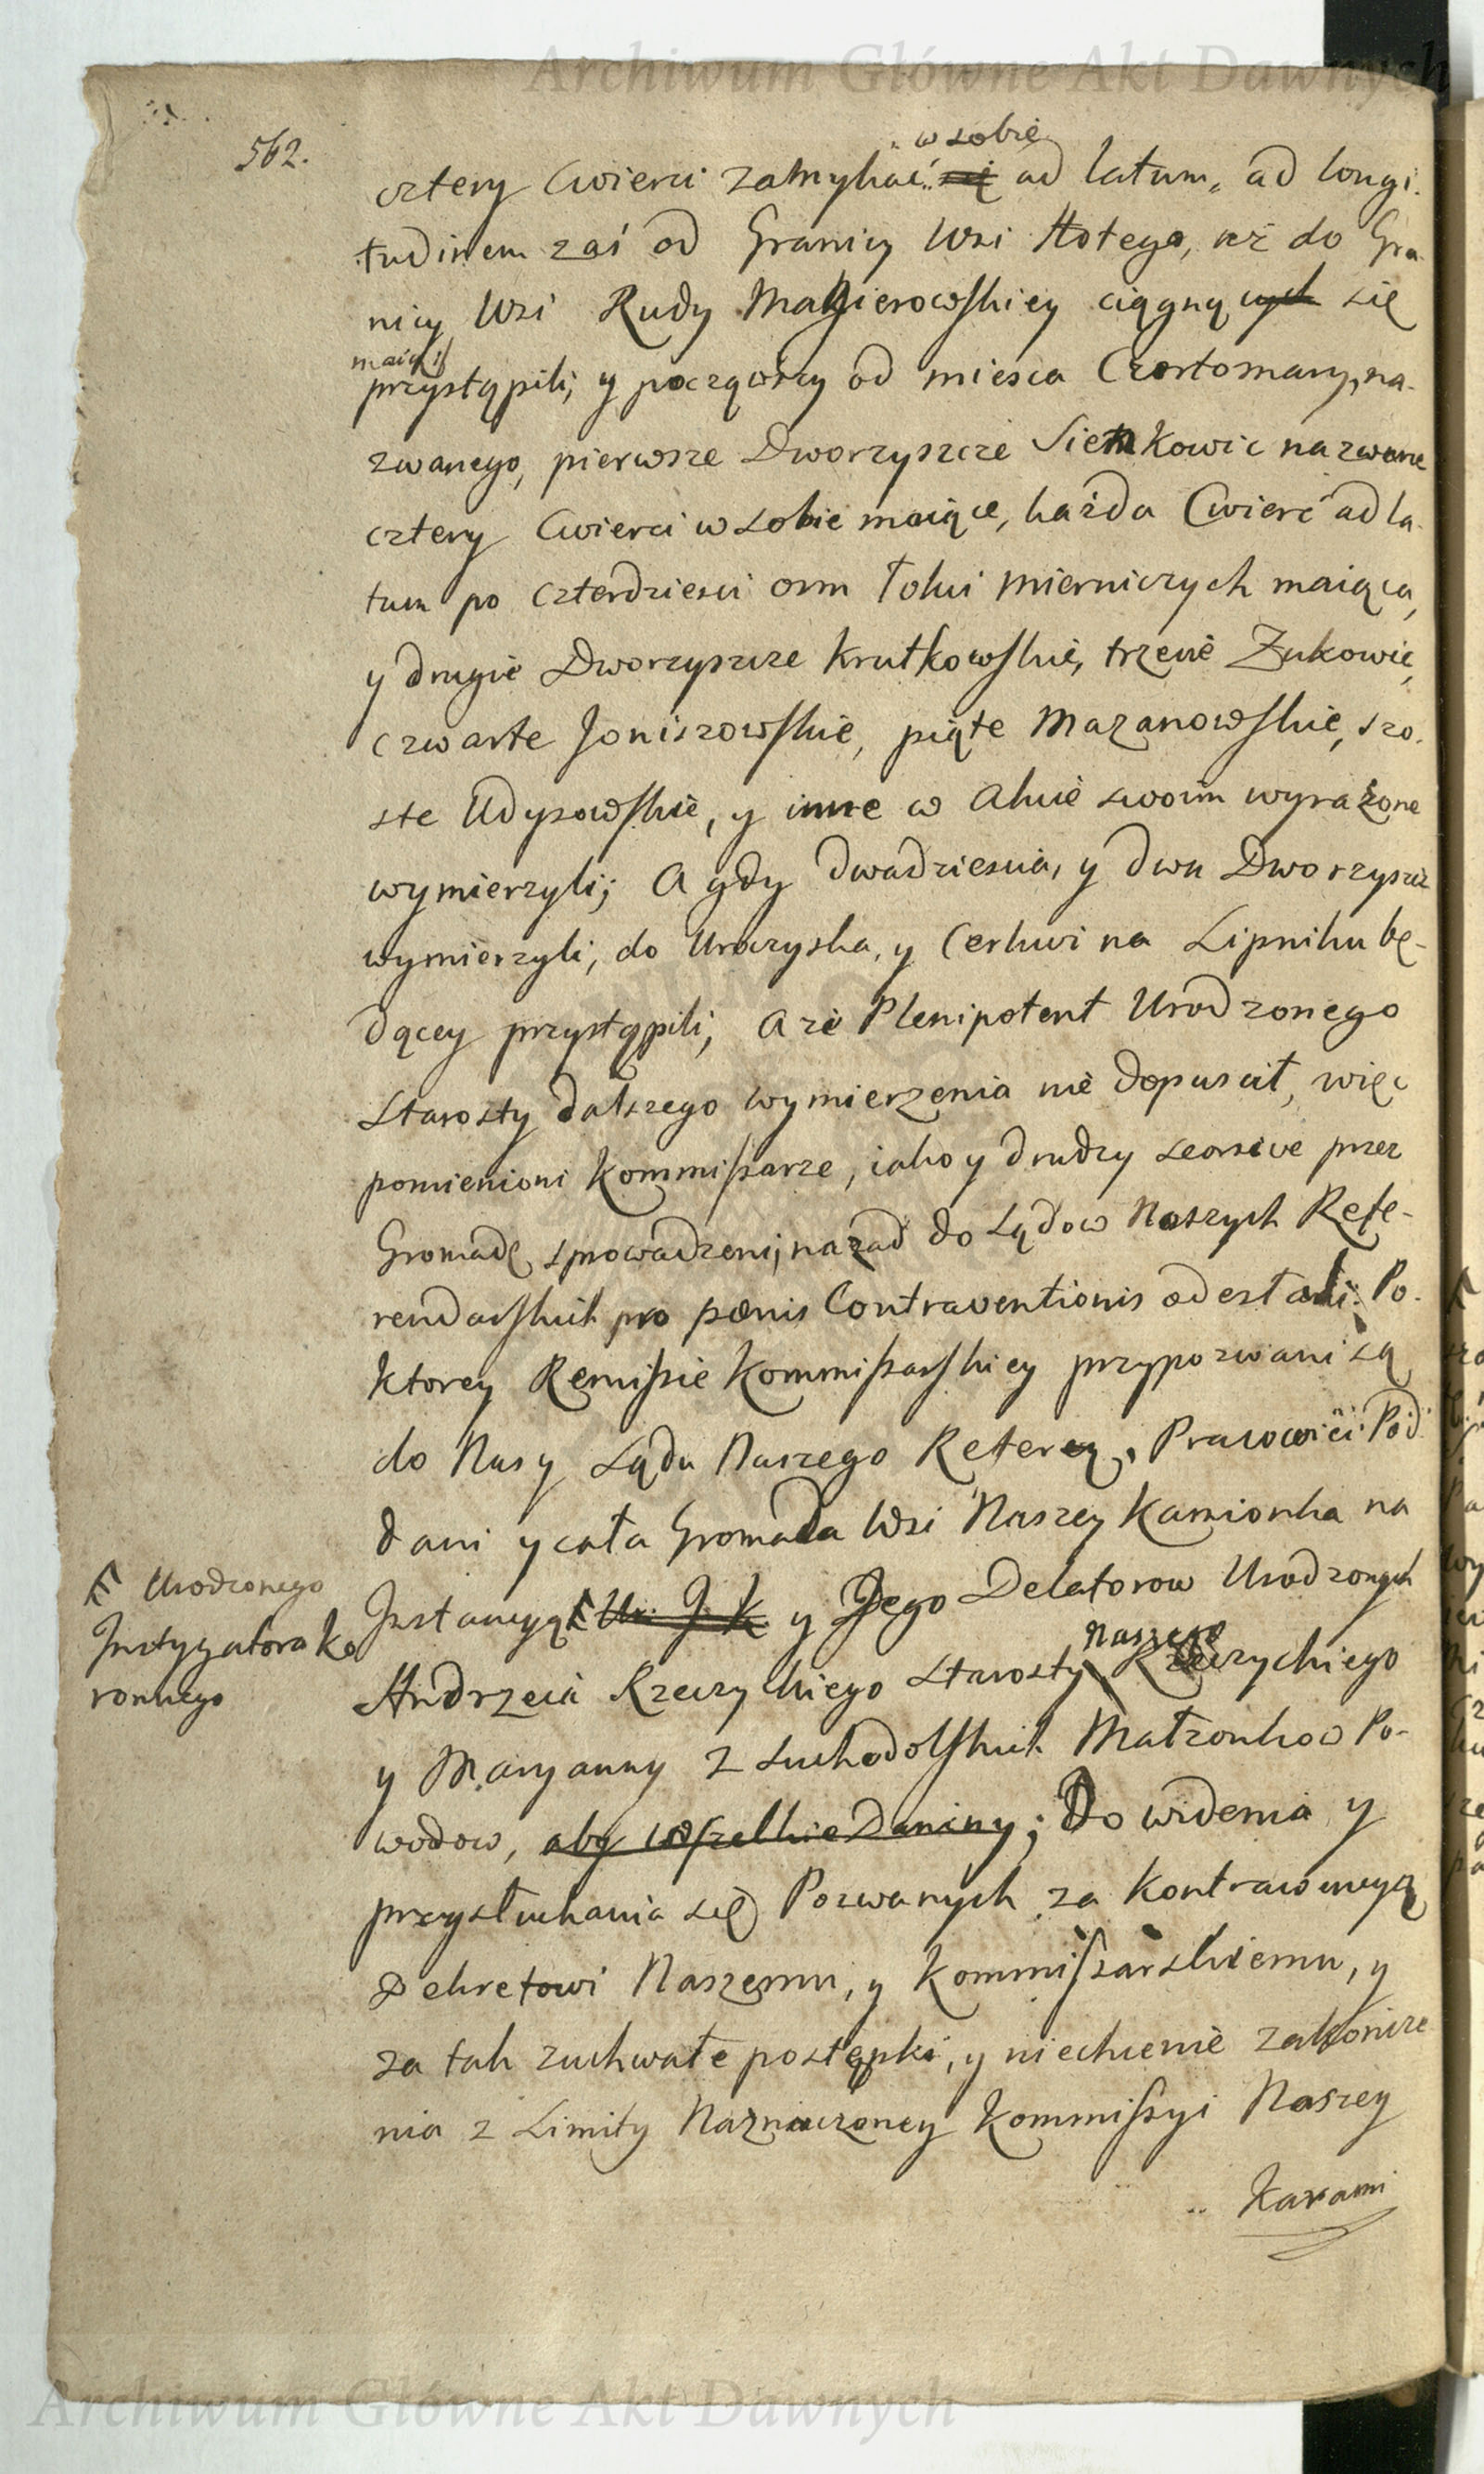 Archiwum Główne Akt Dawnych
562.
w sobie
cztery Cwierci zamykać się ad latum, ad longi-
tudinem zaś od Granicy Wsi Hotego, aż do Gra-
nicy Wsi Rudy Magierowskiey ciągnących się
maiąc
przystąpili; y począwszy od miesca Czortomary, na-
zwanego, pierwsze Dworzyszcze Sienkowic nazwane
cztery Cwierci w sobie maiące, każda Cwierć ad la-
tum po czterdziesci osm Tokci mierniczych maiąca,
y drugie Dworzyszcze Krutkowskie, trzecie Zukowic,
czwarte Joniszowskie, piąte Mazanowskie, szo-
ste Udysowskie, y inne w Akcie swoim wyrażone
wymierzyli; A gdy dwadziescia, y dwa Dworzyszcz
wymierzyli, do Uroczyska, y Cerkwi na Lipniku bę-
dącey przystąpili; A że Plenipotent Urodzonego
Starosty dalszego wymierzenia nie dopuscił, więc
pomienioni Kommissarze, iako y drudzy seorsive przez
Gromadę sprowadzeni, nazad do Sądow Naszych Refe-
rendarskich pro pœnis Contraventionis odesłali: Po-
ktorey Remissie Kommissarskiey przypozwani są
do Nas y Sądu Naszego Referen. Pracowici Pod-
dani y cała Gromada Wsi Naszey Kamionka na
Instancyą Ur. J. K. y Jego Delatorow Urodzonych
Urodzonego
Instygatora Ko
ronnego
Naszego
Andrzeia Rzeczyckiego Starosty Rzeczyckiego
y Maryanny z Suchodolskich Małzonkow Po-
wodow, aby wszelkie Daniny; Do widzenia y
przysłuchania się Pozwanych za Kontrawencyą
Dekretowi Naszemu, y Kommissarskiemu, y
za tak zuchwałe postępki, y niechcenie zakoncze
nia z Limity Naznaczoney Kommissyi Naszey
Karami
Archiwum Główne Akt Dawnych